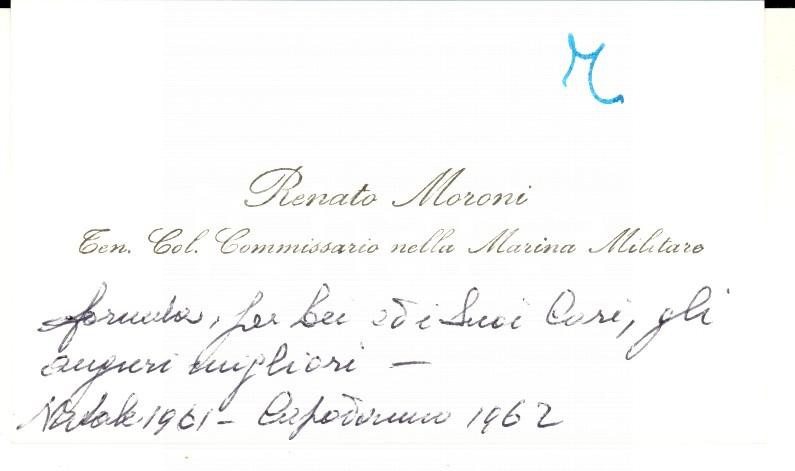 R
Renato Moroni
Ten. Col. Commissario nella Marina Militare
formula, per Lei ed i Suoi Cari, gli
auguri migliori —
Natale 1961 - Capodanno 1962